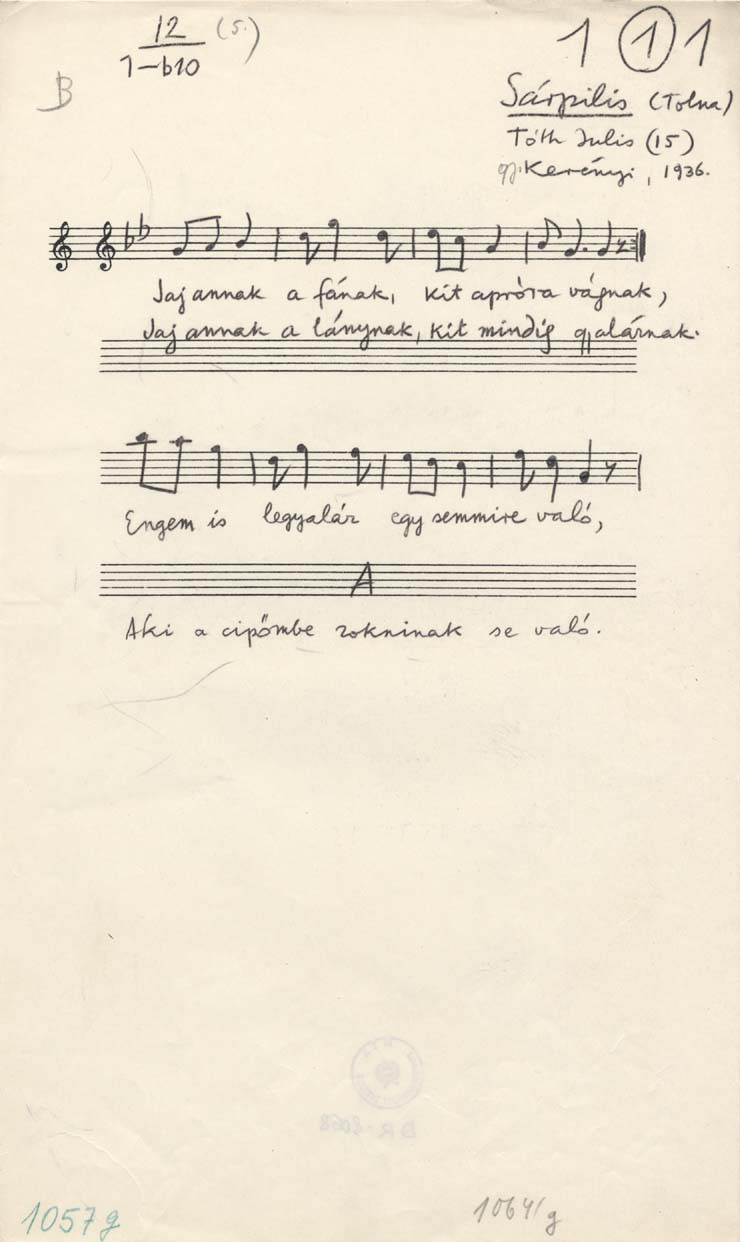 12 (5.)
1-b10
B
1 1 1
Sárpilis (Tolna)
Tóth Julis (15)
gj. Kerényi, 1936.
Jaj annak a fának, kit apróra vágnak,
Jaj annak a lánynak, kit mindig gyaláznak.
Engem is legyaláz egy semmire való,
A
Aki a cipőmbe zokninak se való.
1057 g
1064/g